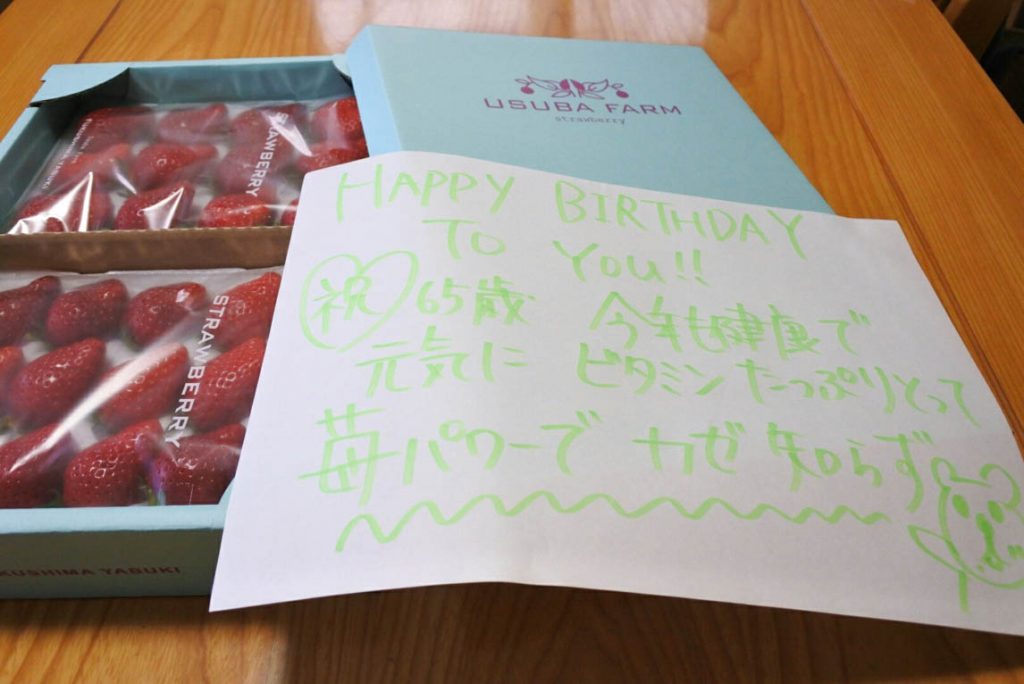 USUBA FARM
strawberry
STRAWBERRY
STRAWBERRY
KUSHIMA YABUKI
HAPPY BIRTHDAY
TO YOU!!
祝 65歳 今年も健康で
元気に ビタミンたっぷりとって
苺パワーで カゼ知らず